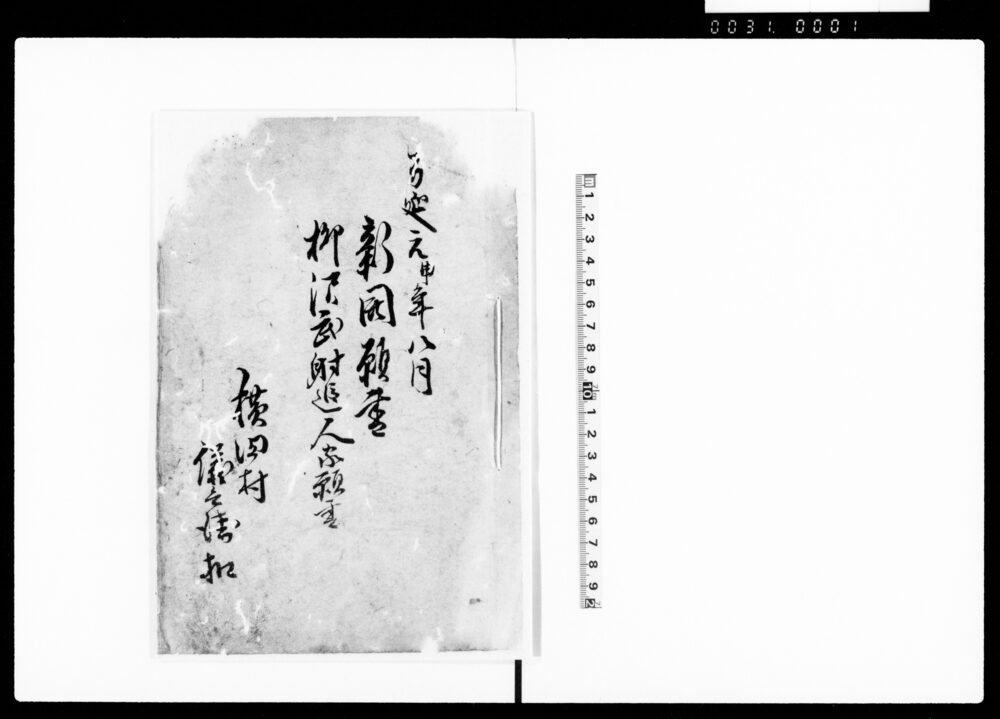 0031. 0001
万延元申年八月
新開願書
柳沢武財追人家願書
横田村
儀兵衛 扣
m 1 2 3 4 5 6 7 8 9 10 1 2 3 4 5 6 7 8 9 2